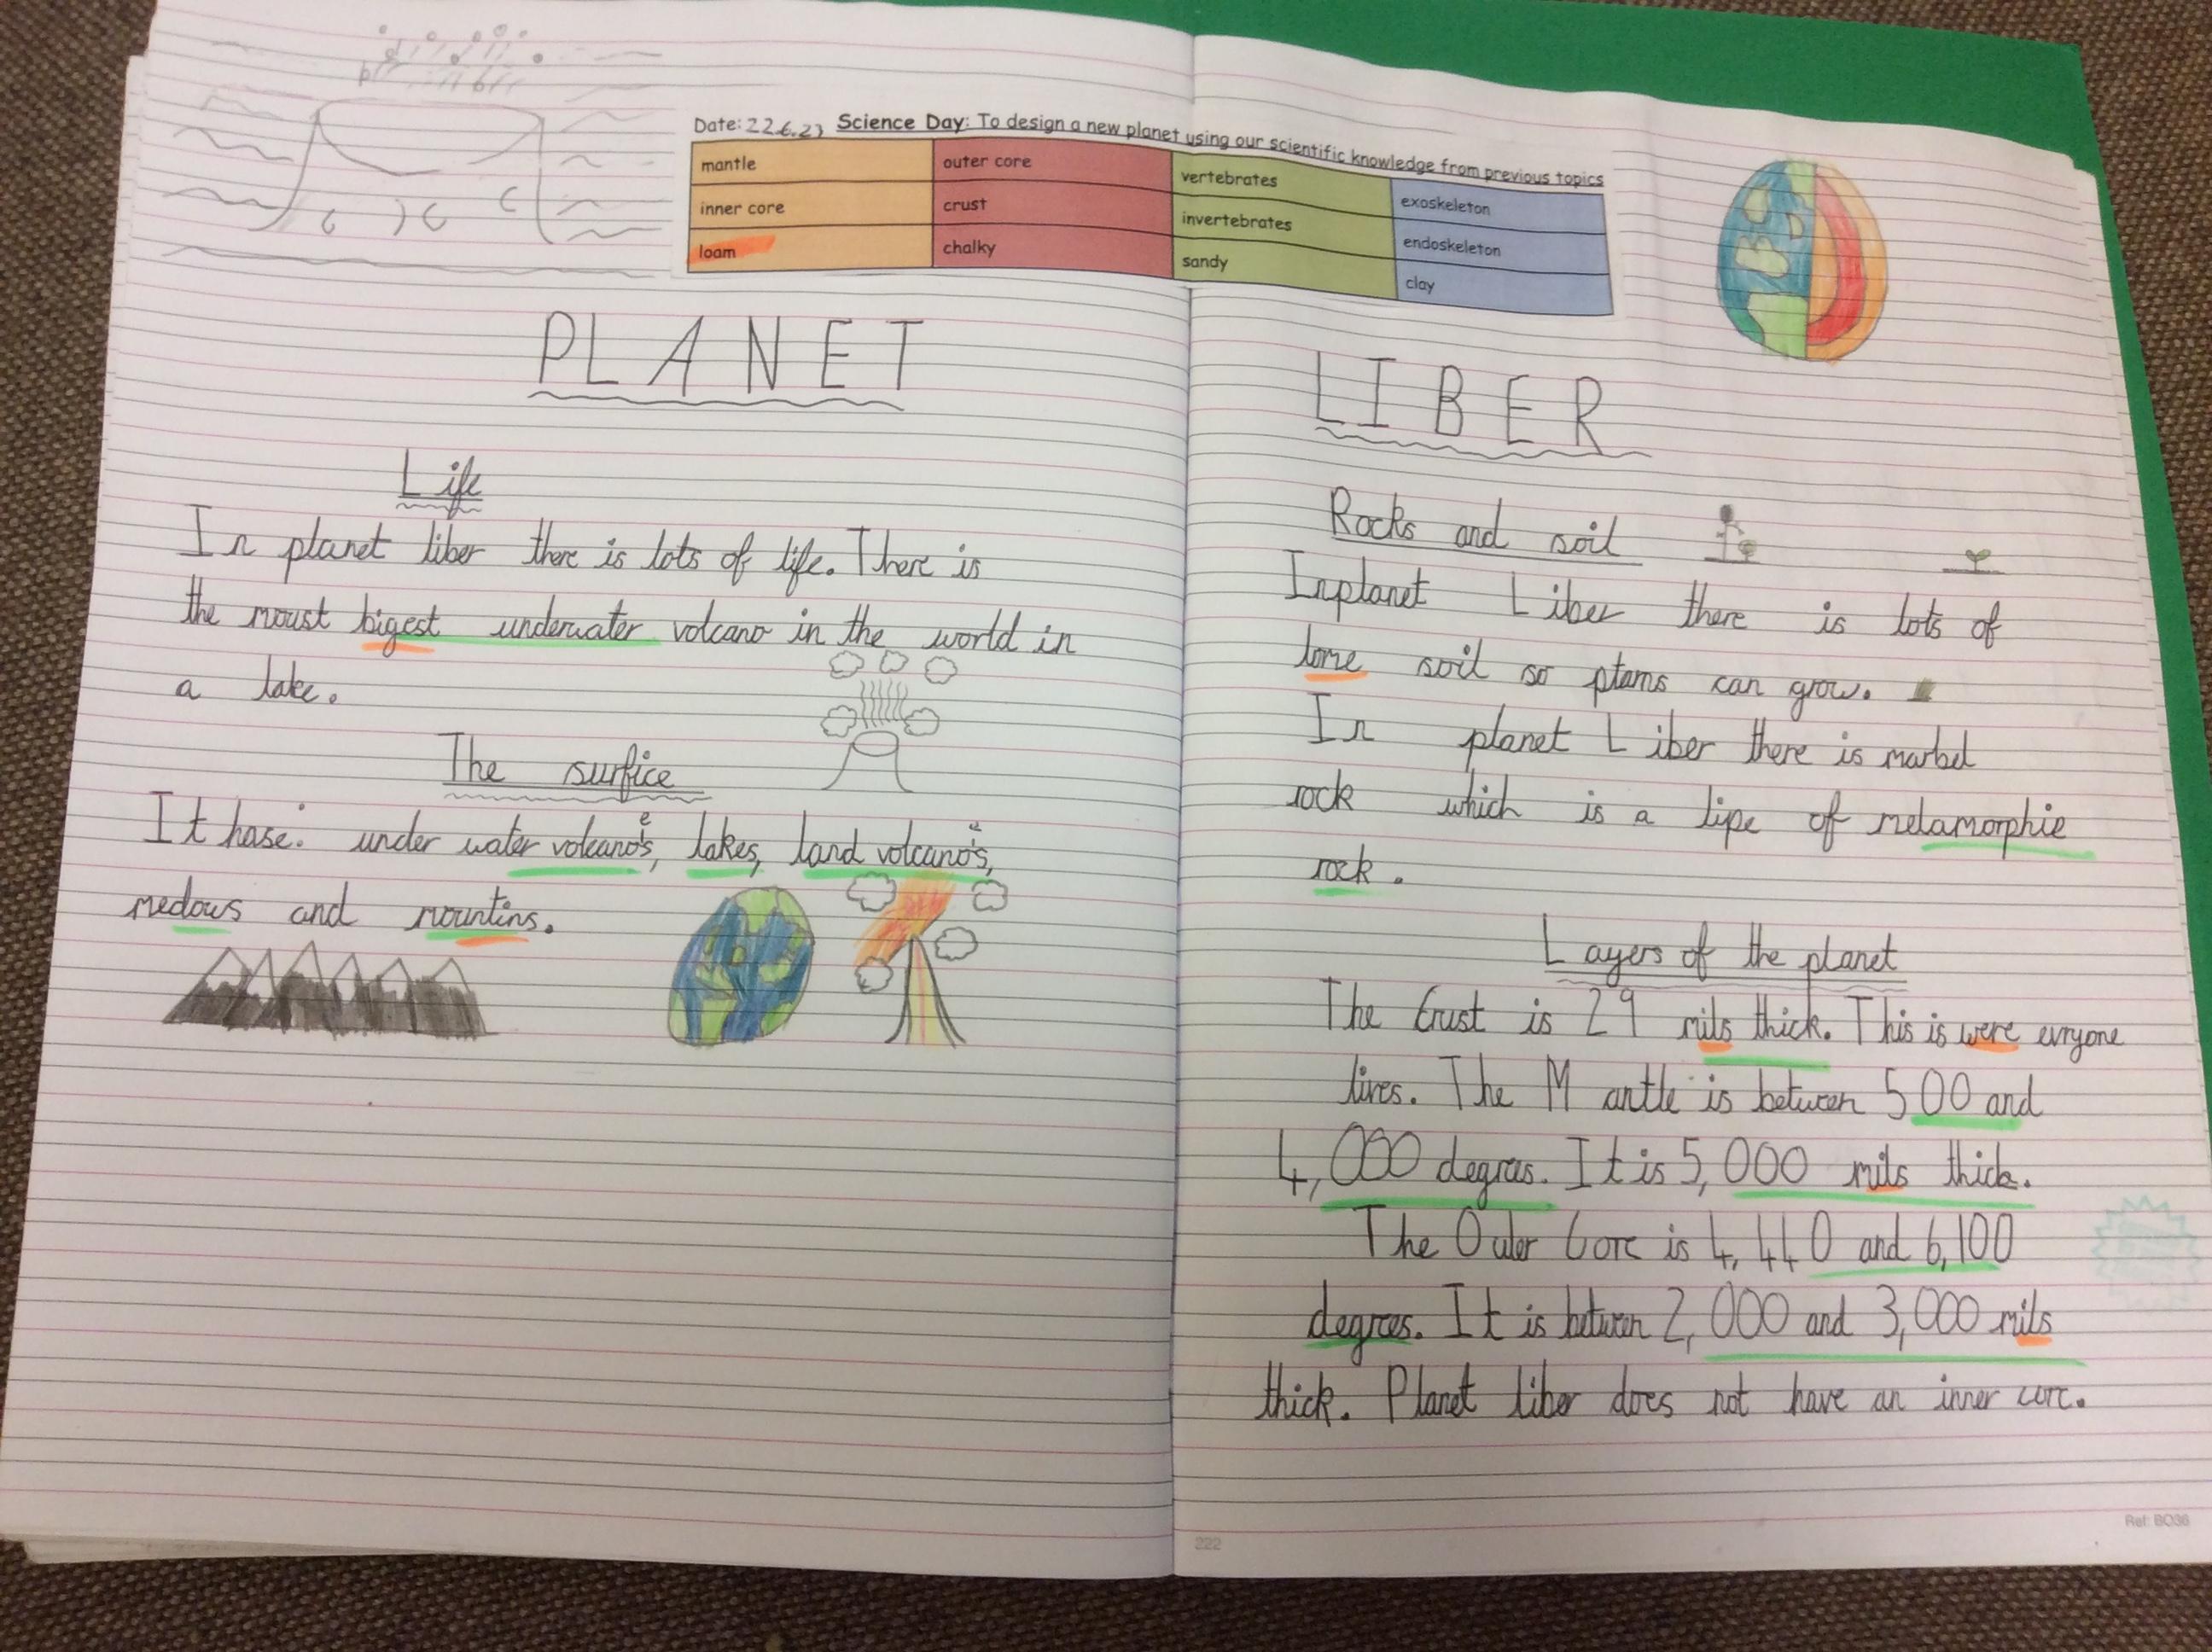 Date: 22.6.23 Science Day: To design a new planet using our scientific knowledge from previous topics
mantle outer core vertebrates exoskeleton
inner core crust invertebrates endoskeleton
loam chalky sandy clay
PLANET LIBER
Life
In planet liber there is lots of life. There is
the moust bigest underwater volcano in the world in
a lake.
The surfice
It hase: under water volcano's, lakes, land volcano's,
medows and mountins.
Rocks and soil
In planet Liber there is lots of
lome soil so can grow.
In planet Liber there is marbel
rock which is a tipe of metamorphic
rock.
Layers of the planet
The Crust is 29 mils thick. This is were evryone
lives. The Mantle is between 500 and
4,000 degrees. It is 5,000 mils thick.
The Outer Core is 4,440 and 6,100
degrees. It is between 2,000 and 3,000 mils
thick. Planet liber does not have an inner core.
222
Ref: BO36